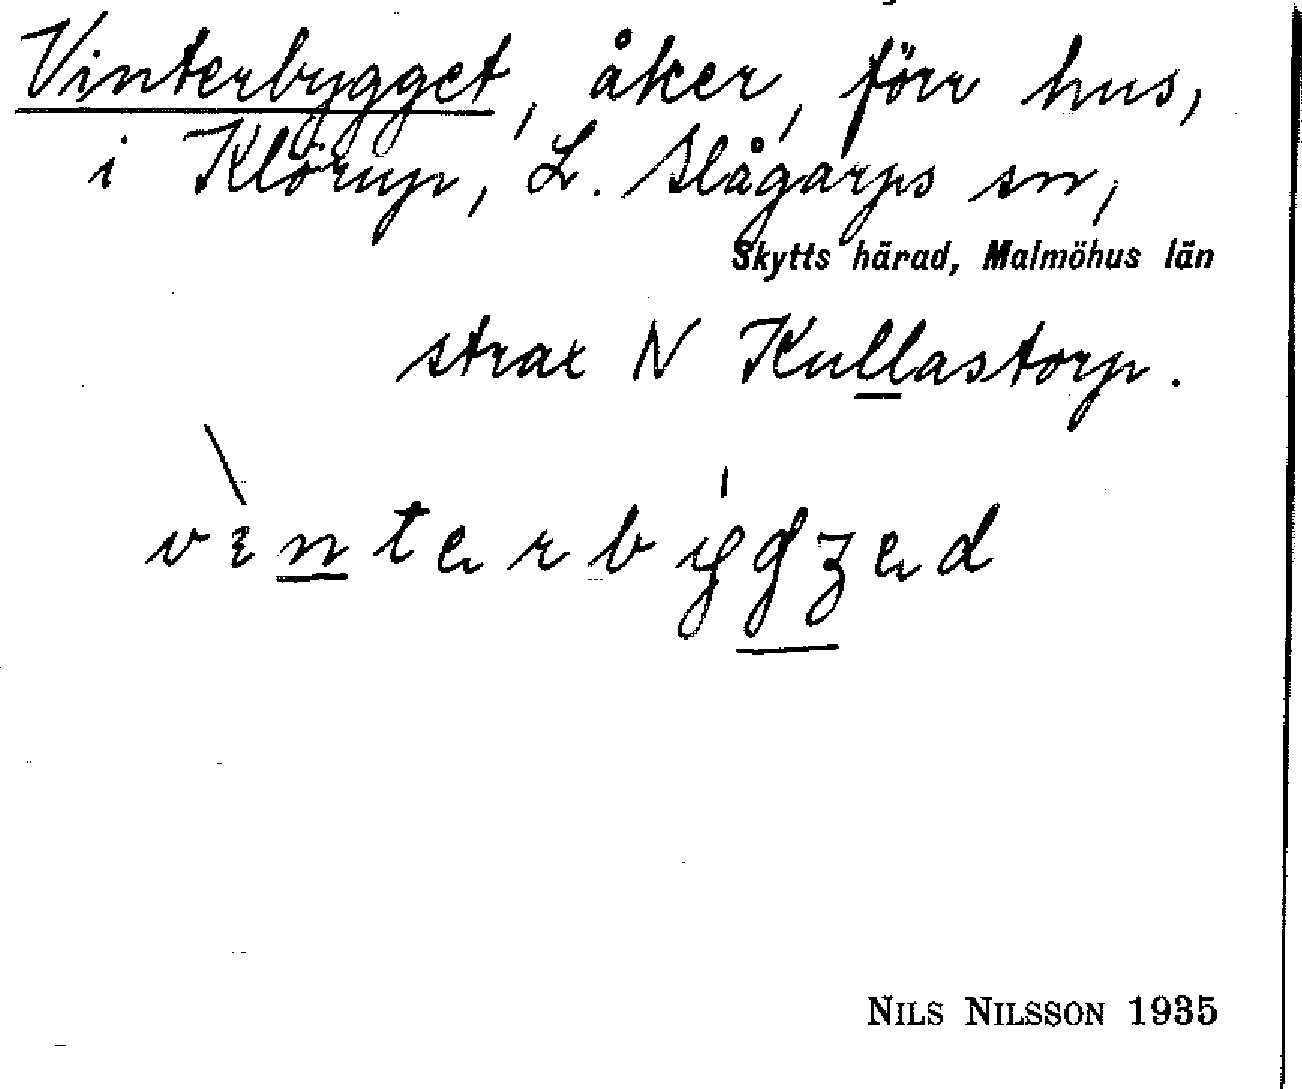 Vinterbygget, åker, förr hus,
i Klörup, L. Slågarps sn,
Skytts härad, Malmöhus län
strax N Kullastorp.
NILS NILSSON 1935